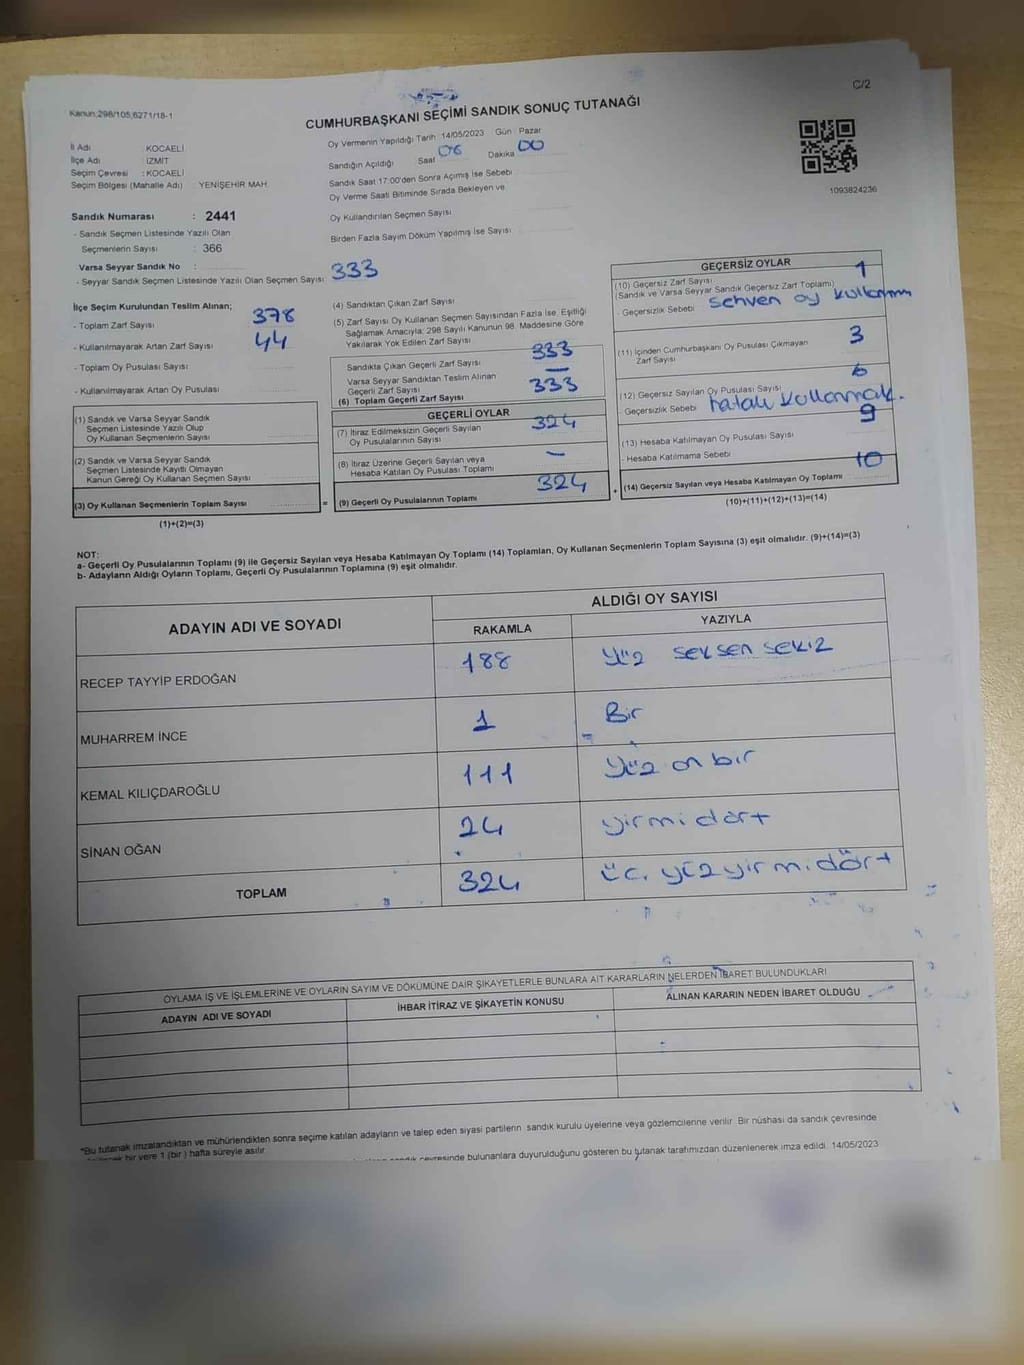 C/2
Kanun,298/105,6271/18-1
CUMHURBAŞKANI SEÇİMİ SANDIK SONUÇ TUTANAĞI
İl Adı : KOCAELİ
İlçe Adı : İZMİT
Seçim Çevresi : KOCAELİ
Seçim Bölgesi (Mahalle Adı) YENİŞEHİR MAH.
Oy Vermenin Yapıldığı Tarih 14/05/2023 Gün Pazar
Sandığın Açıldığı Saat 06 Dakika 00
Sandık Saat 17:00'den Sonra Açımış İse Sebebi
Oy Verme Saati Bitiminde Sırada Bekleyen ve
Oy Kullandırılan Seçmen Sayısı
Birden Fazla Sayım Döküm Yapılmış İse Sayısı
1093824236
Sandık Numarası : 2441
- Sandık Seçmen Listesinde Yazılı Olan
Seçmenlerin Sayısı : 366
Varsa Seyyar Sandık No :
- Seyyar Sandık Seçmen Listesinde Yazılı Olan Seçmen Sayısı 333
İlçe Seçim Kurulundan Teslim Alınan;
- Toplam Zarf Sayısı 378
- Kullanılmayarak Artan Zarf Sayısı 44
- Toplam Oy Pusulası Sayısı
- Kullanılmayarak Artan Oy Pusulası
(1) Sandık ve Varsa Seyyar Sandık
Seçmen Listesinde Yazılı Olup
Oy Kullanan Seçmenlerin Sayısı
(2) Sandık ve Varsa Seyyar Sandık
Seçmen Listesinde Kayıtlı Olmayan
Kanun Gereği Oy Kullanan Seçmen Sayısı
(3) Oy Kullanan Seçmenlerin Toplam Sayısı
(1)+(2)=(3)
=
(4) Sandıktan Çıkan Zarf Sayısı
(5) Zarf Sayısı Oy Kullanan Seçmen Sayısından Fazla İse, Eşitliği
Sağlamak Amacıyla; 298 Sayılı Kanunun 98. Maddesine Göre
Yakılarak Yok Edilen Zarf Sayısı
Sandıkta Çıkan Geçerli Zarf Sayısı 333
Varsa Seyyar Sandıktan Teslim Alınan
Geçerli Zarf Sayısı —
(6) Toplam Geçerli Zarf Sayısı 333
GEÇERLİ OYLAR
(7) İtiraz Edilmeksizin Geçerli Sayılan
Oy Pusulalarının Sayısı 324
(8) İtiraz Üzerine Geçerli Sayılan veya
Hesaba Katılan Oy Pusulası Toplamı —
(9) Geçerli Oy Pusulalarının Toplamı 324
+
GEÇERSİZ OYLAR
(10) Geçersiz Zarf Sayısı 1
(Sandık ve Varsa Seyyar Sandık Geçersiz Zarf Toplamı)
- Geçersizlik Sebebi sehven oy kullanım
(11) İçinden Cumhurbaşkanı Oy Pusulası Çıkmayan
Zarf Sayısı 3
(12) Geçersiz Sayılan Oy Pusulası Sayısı 6
- Geçersizlik Sebebi hatalı kullanmak.
9
(13) Hesaba Katılmayan Oy Pusulası Sayısı
- Hesaba Katılmama Sebebi
(14) Geçersiz Sayılan veya Hesaba Katılmayan Oy Toplamı 10
(10)+(11)+(12)+(13)=(14)
NOT:
a- Geçerli Oy Pusulalarının Toplamı (9) ile Geçersiz Sayılan veya Hesaba Katılmayan Oy Toplamı (14) Toplamları, Oy Kullanan Seçmenlerin Toplam Sayısına (3) eşit olmalıdır. (9)+(14)=(3)
b- Adayların Aldığı Oyların Toplamı, Geçerli Oy Pusulalarının Toplamına (9) eşit olmalıdır.
ADAYIN ADI VE SOYADI
ALDIĞI OY SAYISI
RAKAMLA YAZIYLA
RECEP TAYYİP ERDOĞAN 188 yüz seksen sekiz
MUHARREM İNCE 1 Bir
KEMAL KILIÇDAROĞLU 111 yüz on bir
SİNAN OĞAN 24 yirmi dört
TOPLAM 324 üç yüz yirmi dört
OYLAMA İŞ VE İŞLEMLERİNE VE OYLARIN SAYIM VE DÖKÜMÜNE DAİR ŞİKAYETLERLE BUNLARA AİT KARARLARIN NELERDEN İBARET BULUNDUKLARI
ADAYIN ADI VE SOYADI İHBAR İTİRAZ VE ŞİKAYETİN KONUSU ALINAN KARARIN NEDEN İBARET OLDUĞU
*Bu tutanak imzalandıktan ve mühürlendikten sonra seçime katılan adayların ve talep eden siyasi partilerin sandık kurulu üyelerine veya gözlemcilerine verilir. Bir nüshası da sandık çevresinde
bir yere 1 (bir) hafta süreyle asılır.
sandık çevresinde bulunanlara duyurulduğunu gösteren bu tutanak tarafımızdan düzenlenerek imza edildi. 14/05/2023